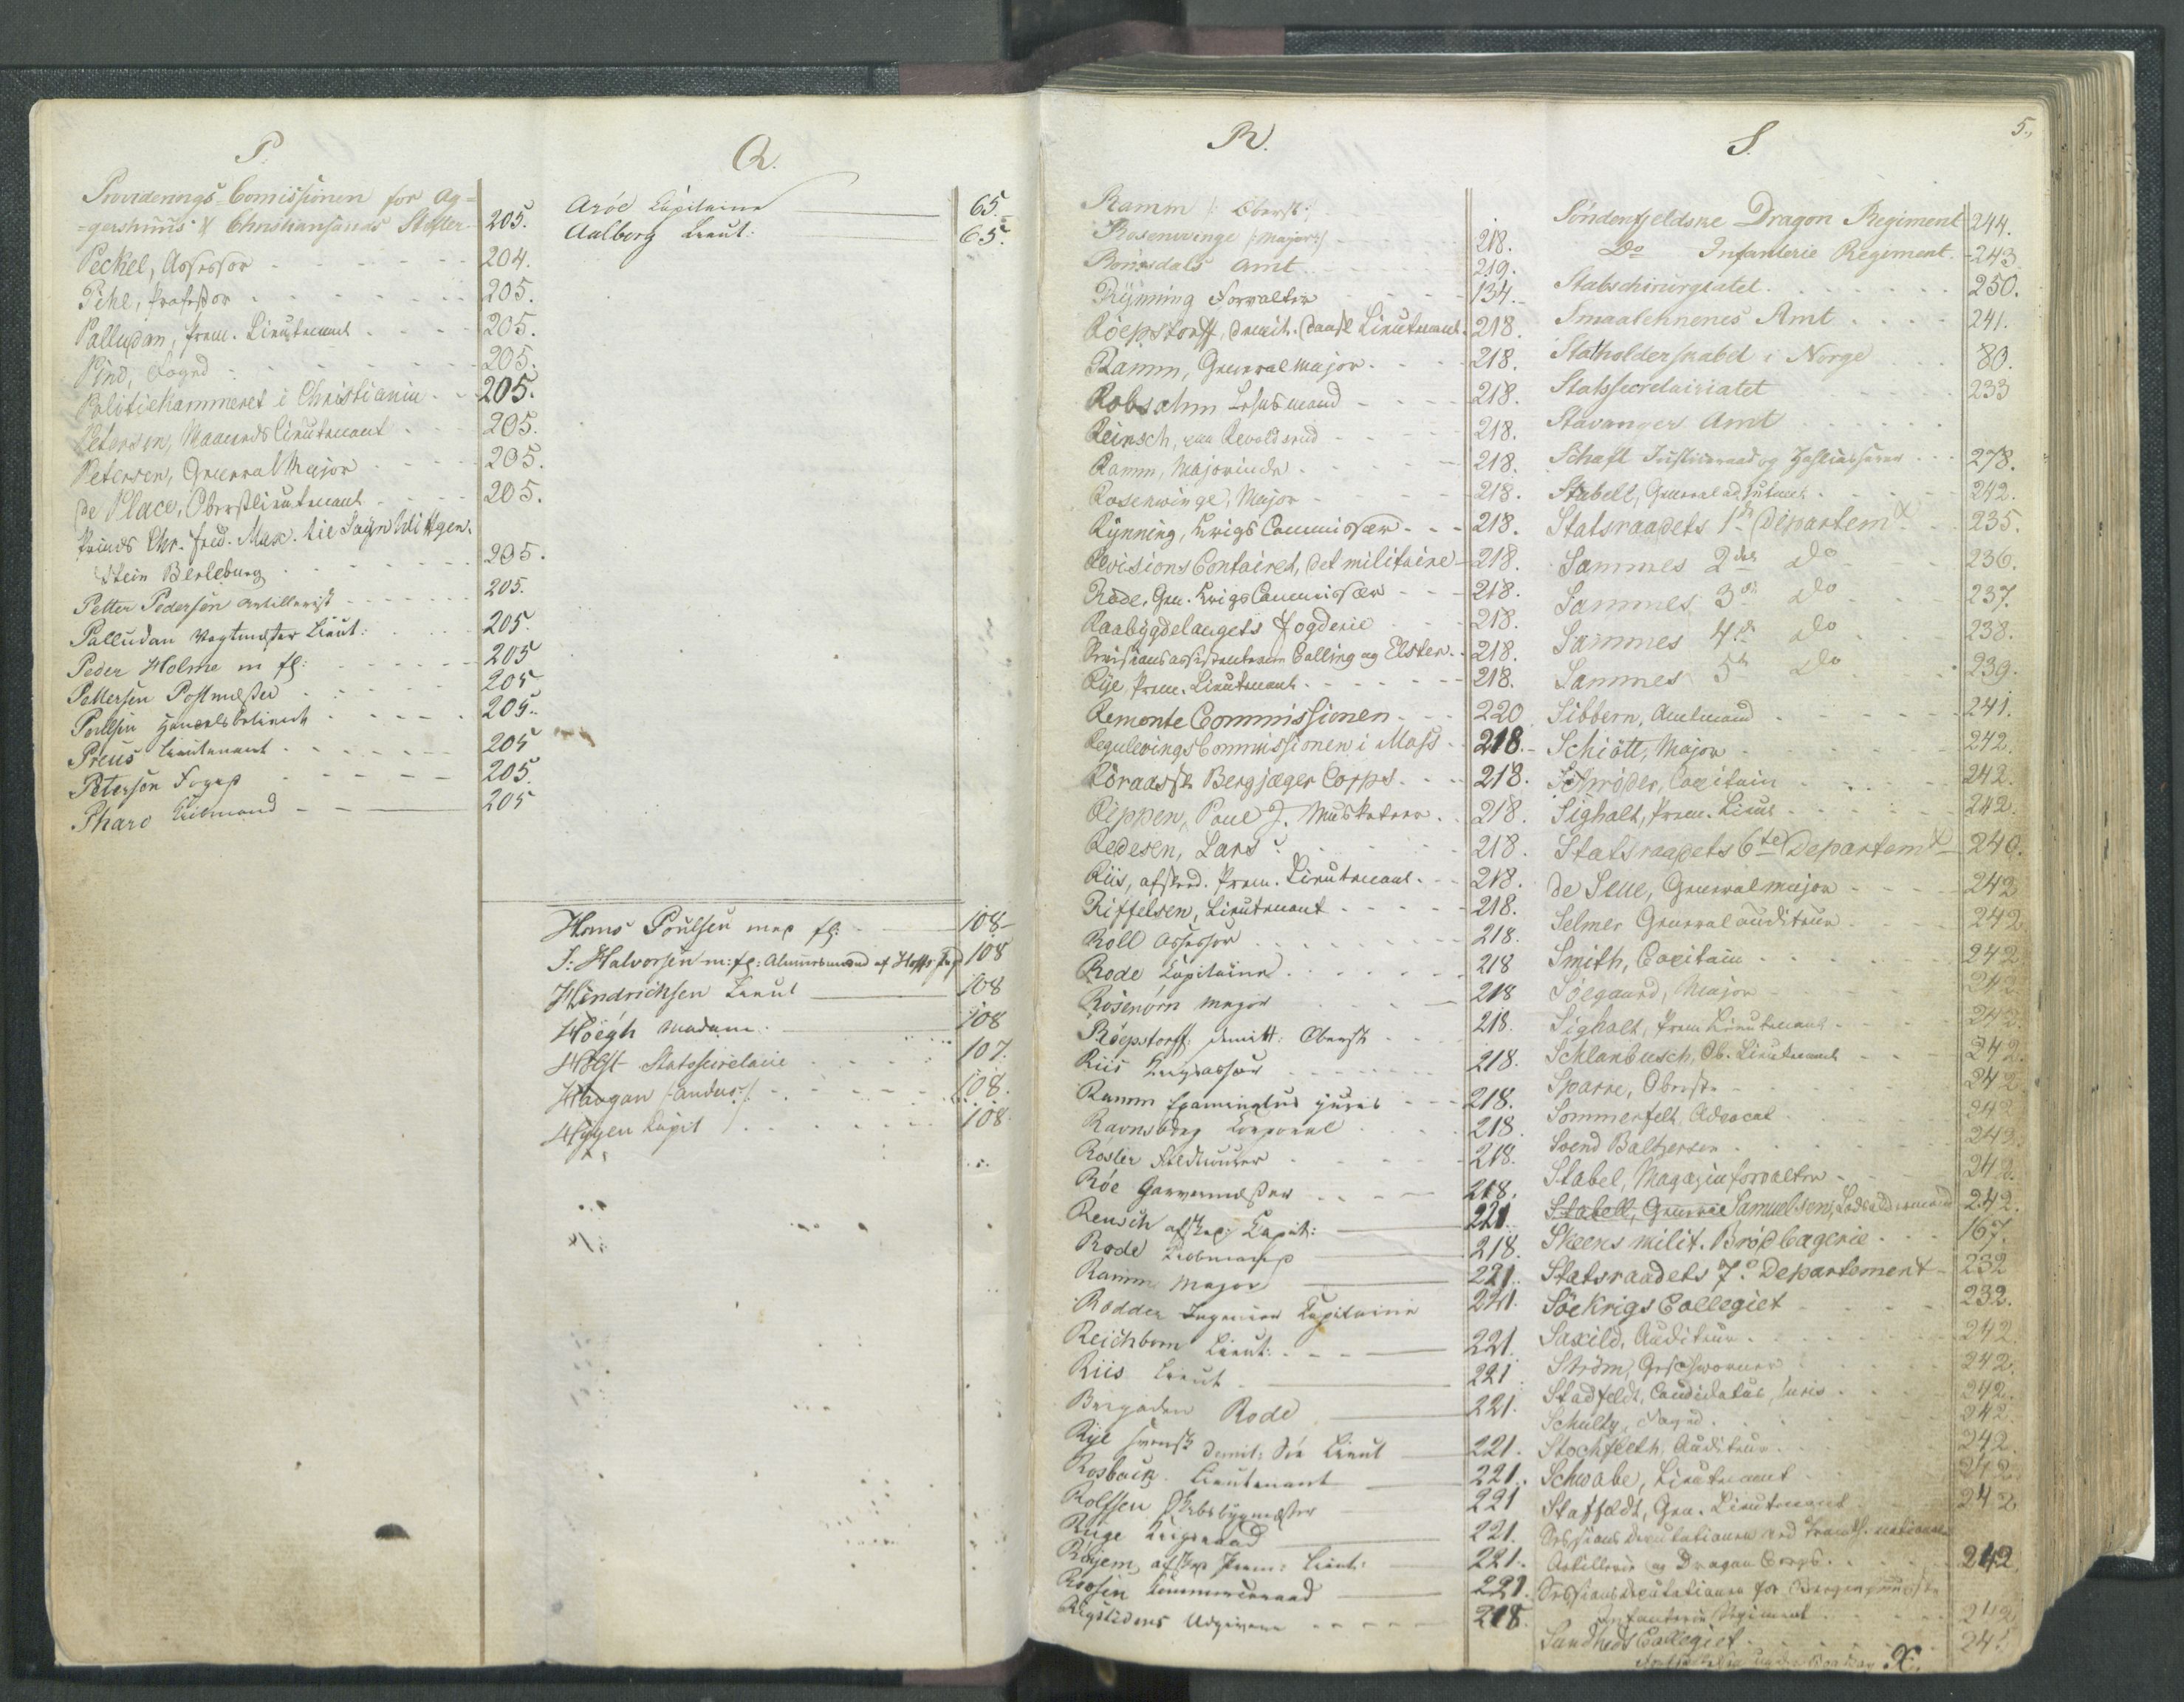 P.
Providerings Comissionen for Ag=
=gershuus & Christiansands Stifter 205.
Peckel, Assessor 204.
Pihl, Professor 205.
Palludan, Prem. Lieutenant 205.
Pind, Foged 205.
Politiekammeret i Christiania 205.
Petersen, Maanedslieutenant 205.
Petersen, General Major 205.
de Place, Oberstlieutenant 205.
Prinds Chr. Fred. Max. til Sayn Wittgen-
stein Berleburg 205.
Petter Pedersen Artillerist 205.
Palludan Vagtmester Lieut: 205.
Peder Holme m fl: 205
Pettersen Postmester 205
Poulsen 205.
Preus Lieutenant 205
Petersen Foged 205.
Pharo 205
Q.
Aröe Capitaine 65.
Aalborg Lieut: 65.
Hans Poulsen med fl: 108
J: Halvorsen m: fl: 108
Hendrichsen Lieut 108
Höegh Madame 108
Holst Statssecretaire 107.
Haagan /:Anders:/ 108.
Hÿgen Capit 108
R.
Ramm /: Oberst:/
Rosenvinge /:Major:/ 218.
Romsdals Amt 219.
Rÿnning Forvalter 134.
Röepstorff, Dmit. Dansk Lieutenant 218.
Ramm, Generalmajor 218.
Robsahm Lehnsmand 218.
Reinsch, 218.
Ramm, Majorinde 218.
Rosenvinge, Major 218.
Rÿnning, Krigs Commissær 218.
Revisions Contoiret, det militaire 218.
Rode, Gen. Krigs Commissær 218.
Raabygdelaugets Fogderie 218.
Revisionsassistenterne Balling og Elster 218.
Rÿe Prem. Lieutenant 218.
Remonte Commissionen 220
Regulerings Commissionen i Moss 218.
Röraasske Bergjæger Corps 218.
Rippen, Poul J. Musketeer 218.
Redesen, Lars 218.
Riis, afsked. Prem. Lieutenant 218.
Riffelsen, Lieutenant 218.
Roll Assessor 218.
Rode Capitaine 218
Rosenörn Major 218
Röepstorff dimitt: Oberst 218.
Riis Krigsassessor 218.
Ramm Examinatus juris 218.
Ravnsborg Corporal 218.
Rosler 218.
Röe Garvermester 218.
Reusch afsked: Capit: 221
Rode Kiobmand 218.
Ramm Major 221.
Rodder Ingenieur Capitaine 221.
Reichborn Lieut: 221.
Riis Lieut 221
Brigaden Rode 221.
Rÿe svensk dimit: Lieut 221.
Rosback Lieutenant 221.
Rolfsen Skibsbygmester 221
Ruge Krigsraad 221.
Röyem afsked Prem: Lieut: 221.
Roosen Commerceraad 221.
Rigstidens Udgivere 218.
5.
S.
Söndenfjeldske Dragon Regiment 244.
Do Infanterie Regiment 243
Stabschirurgiatet 250.
Smaalehnenes Amt 241.
Statholderskabet i Norge 80.
Statssecretairiatet 233
Stavanger Amt
Schaft Justitsraad og 278.
Stabell, Generaladjutant 242.
Statsraadets 1ste Departemt 235.
Sammes 2det Do 236.
Sammes 3die Do 237.
Sammes 4de Do 238.
Sammes 5te Do 239.
Sibbern, Amtmand 241.
Schiött, Major 242.
Schröder, Capitain 242.
Sigholt, Prem. Lieut 242.
Statsraadets 6te Departemt 240.
de Seue, Generalmajor 242
Selmer Generalauditeur 242
Smith, Capitain 242
Söegaard, Major 242
Sigholt, Prem Lieutenant 242
Schlanbusch, Ob. Lieutenant 242.
Sparre, Oberst 242
Sommerfelt, Advocat 242
Svend Baltzersen 242.
Stabel, Magazinforvalter 242.
Stabell, General Samuelsen, Lodsoldermand 242.
Skeens milit. Brödbagerie 167.
Statsraadets 7de Departement 232
Söe Krigs Collegiet 232.
Saxild, Auditeur 242.
Ström, Geschworner 242.
Stadfeldt, Candidatus Juris 242.
Schultz, Foged 242.
Stochfleth, Auditeur 242.
Schwabe, Lieutenant 242
Staffeldt, Gen. Lieutenant 242
Sessions deputationen ved Trondh. nationale
Artillerie og Dragon Corps 242.
Sessionsdeputationen for Bergenhuusiske
Infanterie Regiment 242
Sundheds Collegiet 24